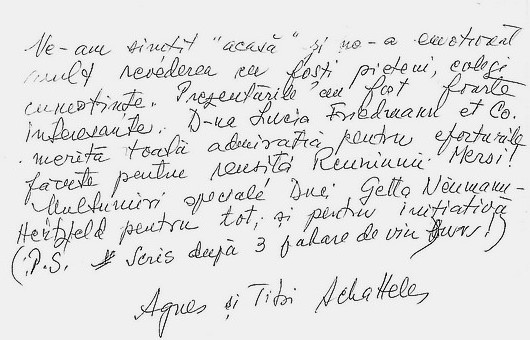 Ne-am simțit "acasă" și ne-a emoționat
mult revederea cu foști prieteni, colegi
cunoștințe. Prezentările au fost foarte
interesante. D-na Lucia Friedmann et Co.
merită toată admirația pentru eforturile
făcute pentru reușita Reuniunii. Mersi!
Mulțumiri speciale Dnei Getta Neumann-
Hertzfeld pentru tot, și pentru inițiativă
(P.S. Scris după 3 pahare de vin bun!)
Agnes și Tibi